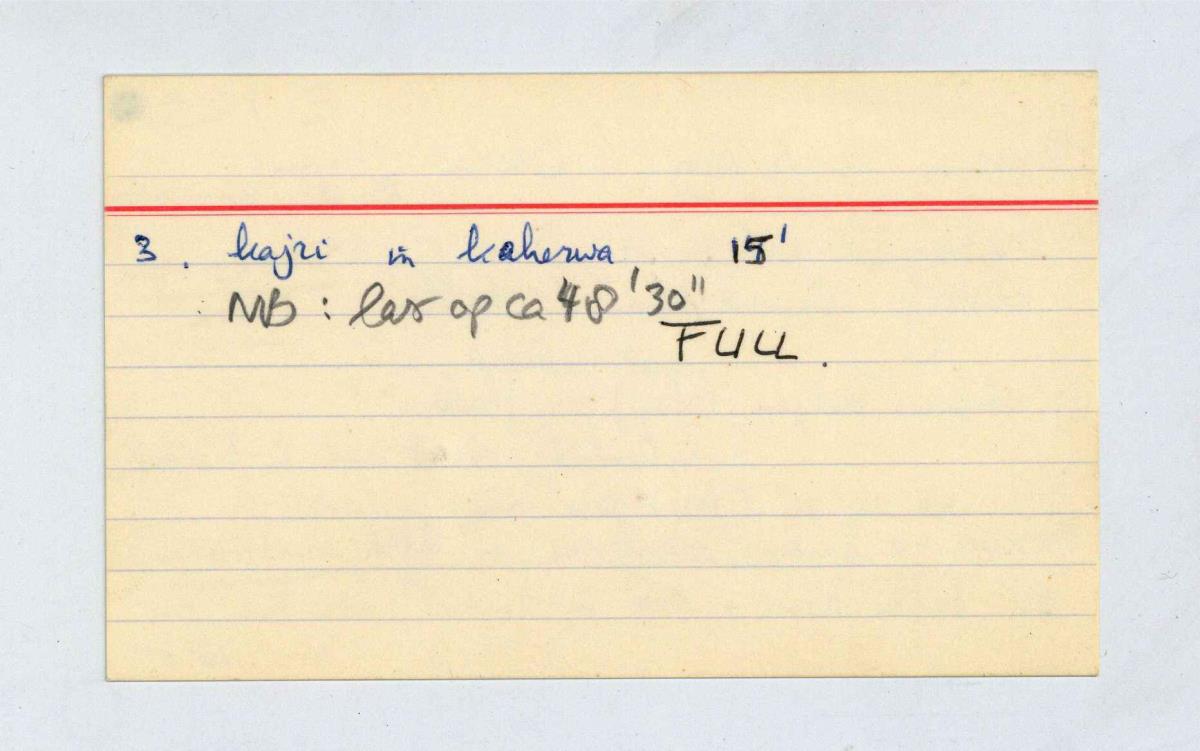 3. kajri in kaherwa 15'
NB: las op ca 48'30"
FULL.